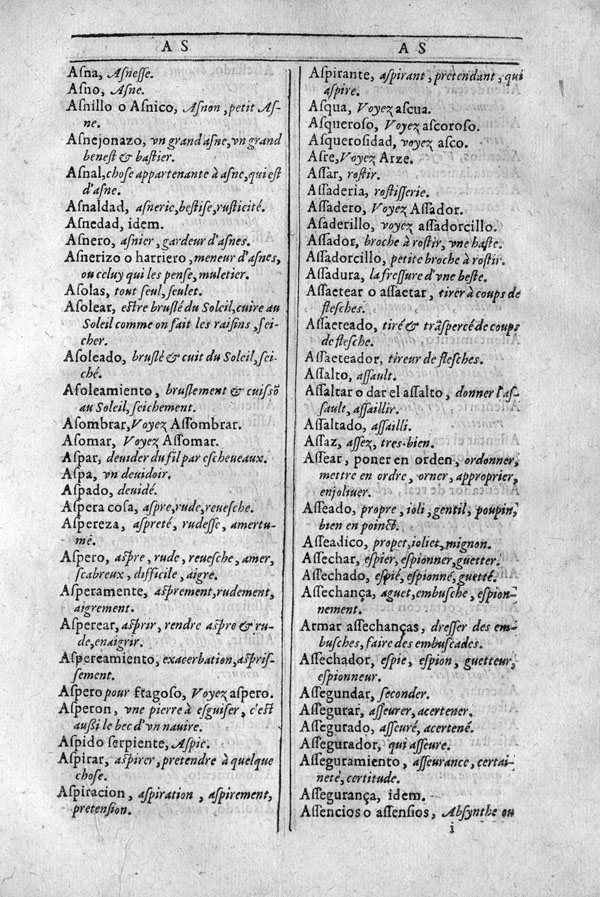 A S
Asna, Asnesse.
Asno, Asne.
Asnillo o Asnico, Asnon, petit As-
ne.
Asnejonazo, vn grand asne, vn grand
benest & bastier.
Asnal, chose appartenante à asne, qui est
d'asne.
Asnaldad, asnerie, bestise, rusticité.
Asnedad, idem.
Asnero, asnier, gardeur d'asnes.
Asnerizo o harriero, meneur d'asnes,
ou celuy qui les pense, muletier.
Asolas, tout seul, seulet.
Asolear, estre bruslé du Soleil, cuire au
Soleil comme on fait les raisins, sei-
cher.
Asoleado, bruslé & cuit du Soleil, sei-
ché.
Asoleamiento, bruslement & cuissõ
au Soleil, seichement.
Asombrar, Voyez Assombrar.
Asomar, Voyez Assomar.
Aspar, deuider du fil par escheueaux.
Aspa, vn deuidoir.
Aspado, deuidé.
Aspera cosa, aspre, rude, reuesche.
Aspereza, aspreté, rudesse, amertu-
me.
Aspero, aspre, rude, reuesche, amer,
scabreux, difficile, aigre.
Asperamente, asprement, rudement,
aigrement.
Asperear, asprir, rendre aspre & ru-
de, enaigrir.
Aspereamiento, exacerbation, aspris-
sement.
Aspero pour fragoso, Voyez aspero.
Asperon, vne pierre à esguiser, c'est
aussi le bec d'vn nauire.
Aspido serpiente, Aspic.
Aspirar, aspirer, pretendre à quelque
chose.
Aspiracion, aspiration, aspirement,
pretension.
A S
Aspirante, aspirant, pretendant, qui
aspire.
Asqua, Voyez ascua.
Asqueroso, Voyez ascoroso.
Asquerosidad, voyez asco.
Asre, Voyez Arze.
Assar, rostir.
Assaderia, rostisserie.
Assadero, Voyez Assador.
Asaderillo, voyez assadorcillo.
Assador, broche à rostir, vne haste.
Assadorcillo, petite broche à rostir.
Assadura, la fressure d'vne beste.
Assactear o assaetar, tirer à coups de
flesches.
Assaeteado, tiré & trãspercé de coups
de flesche.
Assaeteador, tireur de flesches.
Assalto, assault.
Assaltar o dar el assalto, donner l'as-
sault, assaillir.
Assaltado, assailli.
Assaz, assez, tres-bien.
Assear, poner en orden, ordonner,
mettre en ordre, orner, approprier,
enjoliuer.
Asseado, propre, ioli, gentil, poupin,
bien en poinct.
Asseadico, propet, ioliet, mignon.
Assechar, espier, espionner, guetter.
Assechado, espié, espionné, guetté.
Assechança, aguet, embusche, espion-
nement.
Armar assechanças, dresser des em-
busches, faire des embuscades.
Assechador, espie, espion, guetteur,
espionneur.
Assegundar, seconder.
Assegurar, asseurer, acertener.
Assegurado, asseuré, acertené.
Assegurador, qui asseure.
Asseguramiento, asseurance, certai-
neté, certitude.
Assegurança, idem.
Assencios o assensios, Absynthe ou
i